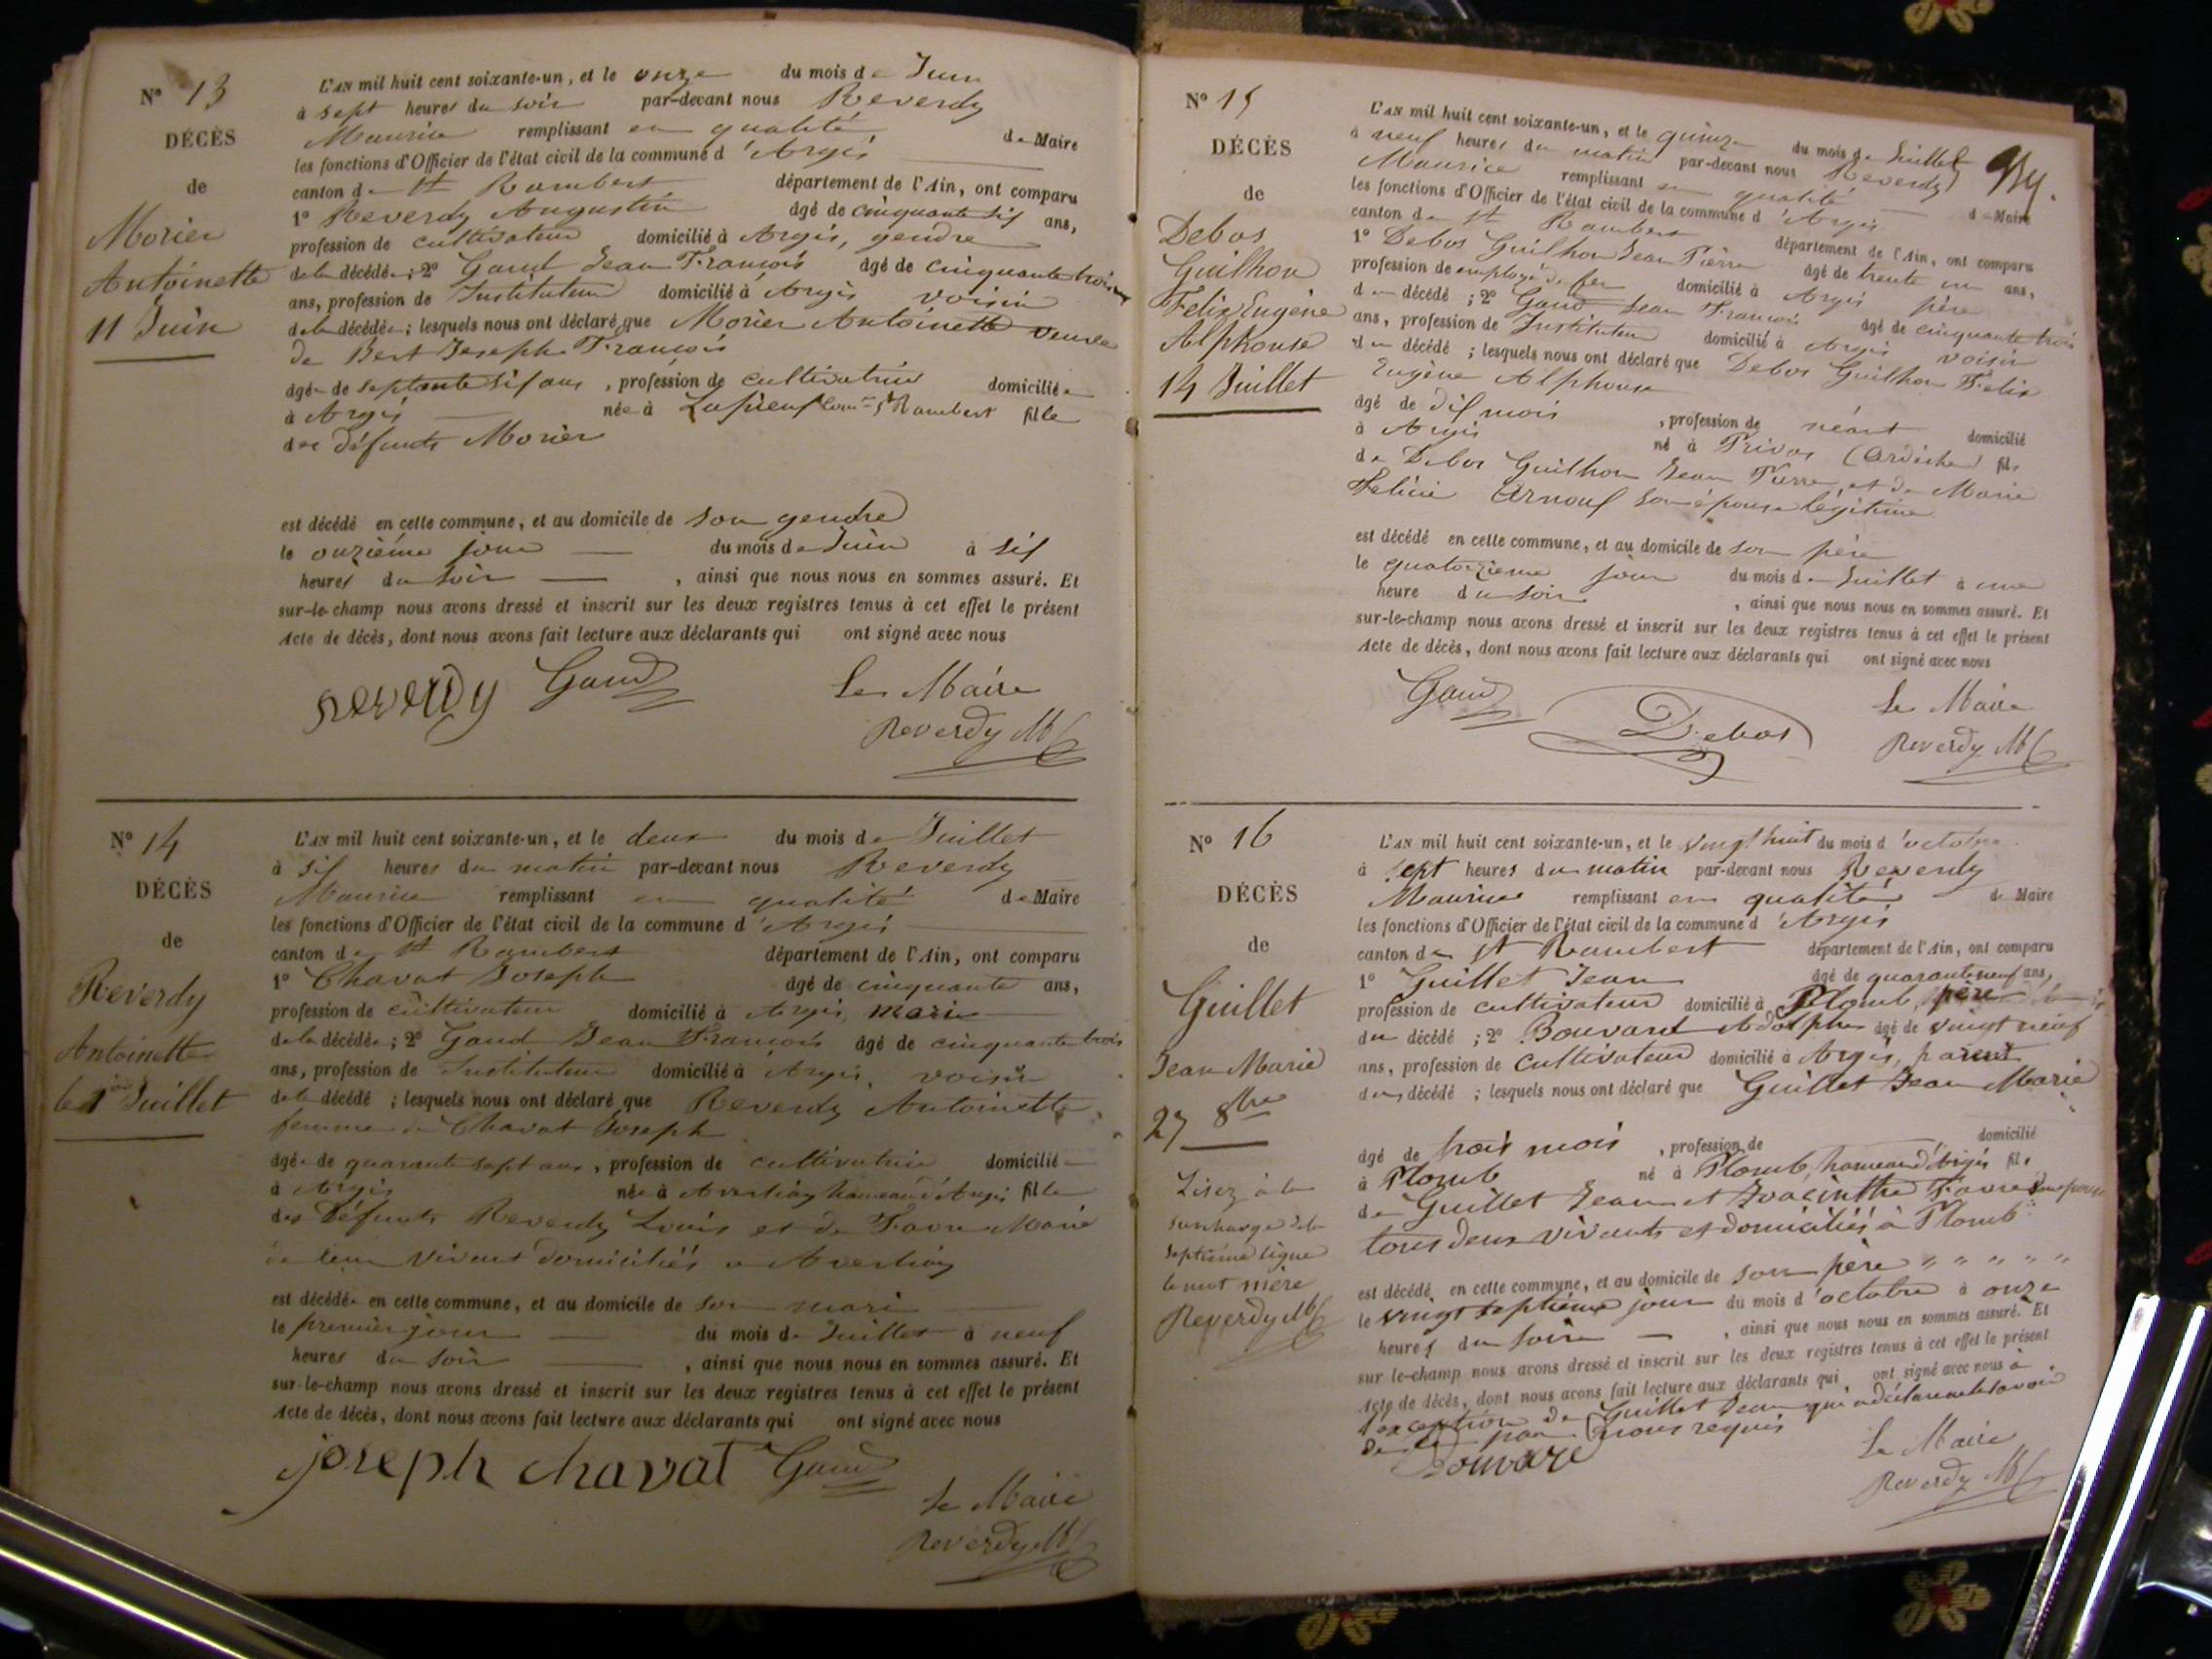 N° 13
DÉCÈS
de
Morier
Antoinette
11 Juin
L'AN mil huit cent soixante-un, et le onze du mois de Juin
à sept heures du soir par-devant nous Reverdy
Maurice remplissant en qualité, de Maire
les fonctions d'Officier de l'état civil de la commune d'Argis
canton de St Rambert département de l'Ain, ont comparu
1° Reverdy Augustin âgé de cinquante six ans,
profession de cultivateur domicilié à Argis, gendre
de la décédée; 2° Gaud Jean François âgé de cinquante trois
ans, profession de Instituteur domicilié à Argis voisin
de la décédée; lesquels nous ont déclaré que Morier Antoinette veuve
de Bert Joseph François
âgée de septante six ans, profession de cultivatrice domiciliée
à Argis née à Lupieux St Rambert fille
des défunts Morier
est décédé en cette commune, et au domicile de son gendre
le onzième jour du mois de Juin à six
heures du soir, ainsi que nous nous en sommes assuré. Et
sur-le-champ nous avons dressé et inscrit sur les deux registres tenus à cet effet le présent
Acte de décès, dont nous avons fait lecture aux déclarants qui ont signé avec nous
reverdy Gaud Le Maire
Reverdy M
N° 14
DÉCÈS
de
Reverdy
Antoinette
le 1er Juillet
L'AN mil huit cent soixante-un, et le deux du mois de Juillet
à six heures du matin par-devant nous Reverdy
Maurice remplissant en qualité de Maire
les fonctions d'Officier de l'état civil de la commune d'Argis
canton de St Rambert département de l'Ain, ont comparu
1° Chavat Joseph âgé de cinquante ans,
profession de cultivateur domicilié à Argis, mari
de la décédée; 2° Gaud Jean François âgé de cinquante trois
ans, profession de Instituteur domicilié à Argis, voisin
de la décédé; lesquels nous ont déclaré que Reverdy Antoinette
femme de Chavat Joseph
âgée de quarante sept ans, profession de cultivatrice domicilié
à Argis née à Averliaz hameau d'Argis fille
des défunts Reverdy Louis et de Favre Marie
de leur vivant domiciliés à Averliaz
est décédée en cette commune, et au domicile de son mari
le premier jour du mois de Juillet à neuf
heures du soir, ainsi que nous nous en sommes assuré. Et
sur-le-champ nous avons dressé et inscrit sur les deux registres tenus à cet effet le présent
Acte de décès, dont nous avons fait lecture aux déclarants qui ont signé avec nous
joseph chavat Gaud
Le Maire
Reverdy M
N° 15
DÉCÈS
de
Debos
Guilhon
Felix Eugène
Alphonse
14 Juillet
L'AN mil huit cent soixante-un, et le quinze du mois de Juillet
à neuf heures du matin par-devant nous Reverdy
Maurice remplissant en qualité de Maire
les fonctions d'Officier de l'état civil de la commune d'Argis
canton de St Rambert département de l'Ain, ont comparu
1° Debos Guilhon Jean Pierre âgé de trente un ans,
profession de employé de fer domicilié à Argis père
du décédé; 2° Gaud Jean François âgé de cinquante trois
ans, profession de Instituteur domicilié à Argis voisin
du décédé; lesquels nous ont déclaré que Debos Guilhon Felix
Eugène Alphonse
âgé de dix mois, profession de néant domicilié
à Argis né à Privas (Ardèche) fils
de Debos Guilhon Jean Pierre et de Marie
Felicie Arnouf son épouse légitime
est décédé en cette commune, et au domicile de son père
le quatorzième jour du mois de Juillet à une
heure du soir, ainsi que nous nous en sommes assuré. Et
sur-le-champ nous avons dressé et inscrit sur les deux registres tenus à cet effet le présent
Acte de décès, dont nous avons fait lecture aux déclarants qui ont signé avec nous
Gaud Debos Le Maire
Reverdy M
N° 16
DÉCÈS
de
Guillet
Jean Marie
27 8bre
Lisez à la
surcharge de la
septième ligne
le mot mère
Reverdy M
L'AN mil huit cent soixante-un, et le vingt huit du mois d'octobre
à sept heures du matin par-devant nous Reverdy
Maurice remplissant en qualité de Maire
les fonctions d'Officier de l'état civil de la commune d'Argis
canton de St Rambert département de l'Ain, ont comparu
1° Guillet Jean âgé de quarante neuf ans,
profession de cultivateur domicilié à Plomb, père
du décédé; 2° Bouvard Adolphe âgé de vingt neuf
ans, profession de cultivateur domicilié à Argis, parent
du décédé; lesquels nous ont déclaré que Guillet Jean Marie
âgé de trois mois, profession de domicilié
à Plomb né à Plomb, hameau d'Argis fils
de Guillet Jean et Hyacinthe Favre son épouse
tous deux vivants et domiciliés à Plomb
est décédé en cette commune, et au domicile de son père " " " " "
le vingt septième jour du mois d'octobre à onze
heures du soir, ainsi que nous nous en sommes assuré. Et
sur-le-champ nous avons dressé et inscrit sur les deux registres tenus à cet effet le présent
Acte de décès, dont nous avons fait lecture aux déclarants qui ont signé avec nous à
l'exception de Guillet Jean qui a déclaré ne le savoir
de ce par nous requis
Bouvard Le Maire
Reverdy M